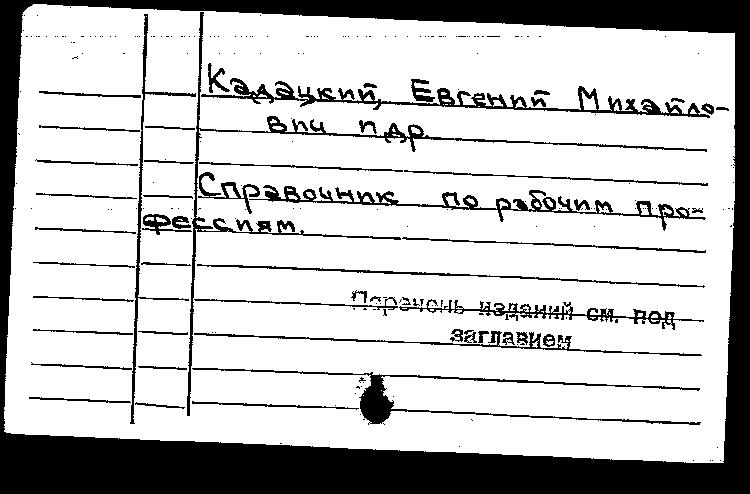 Кадацкий, Евгений Михайло-
вич и др.
Справочник по рабочим про-
фессиям.
Перечень изданий см. под
заглавием